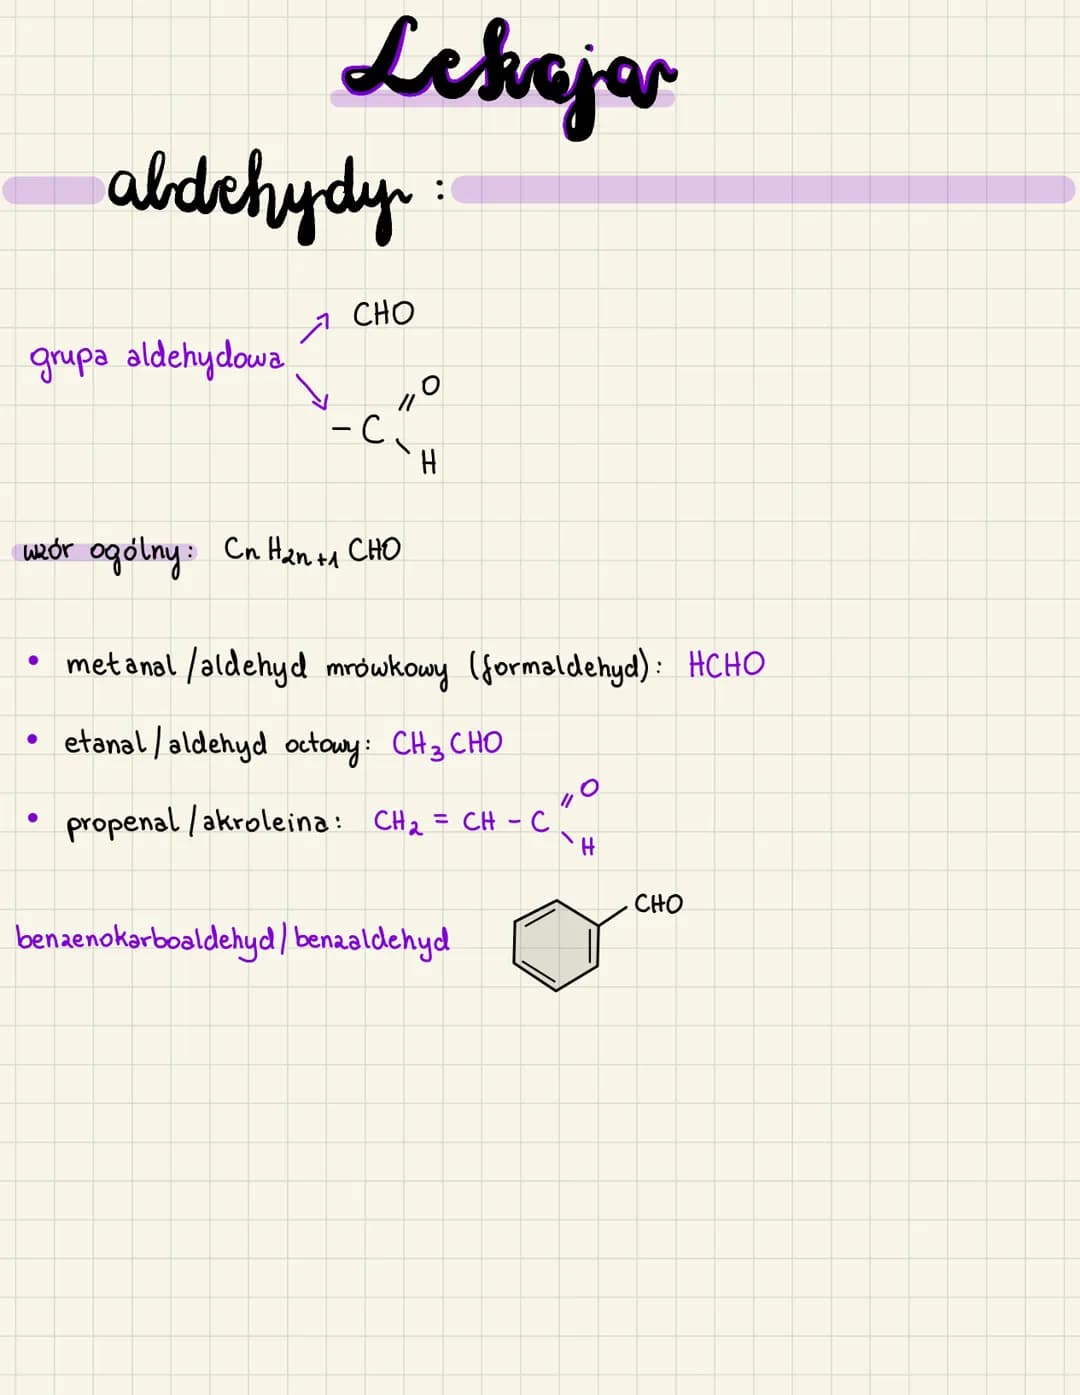 Lekcja
aldehydy:
CHO
grupa aldehydowa
O
- C
H
wzór ogólny: CnH2n+1 CHO
• metanal/aldehyd mrówkowy (formaldehyd): HCHO
• etanal/aldehyd octowy: CH3CHO
• propenal/akroleina: CH2 = CH - C
O
H
CHO
benzenokarboaldehyd/benzaldehyd